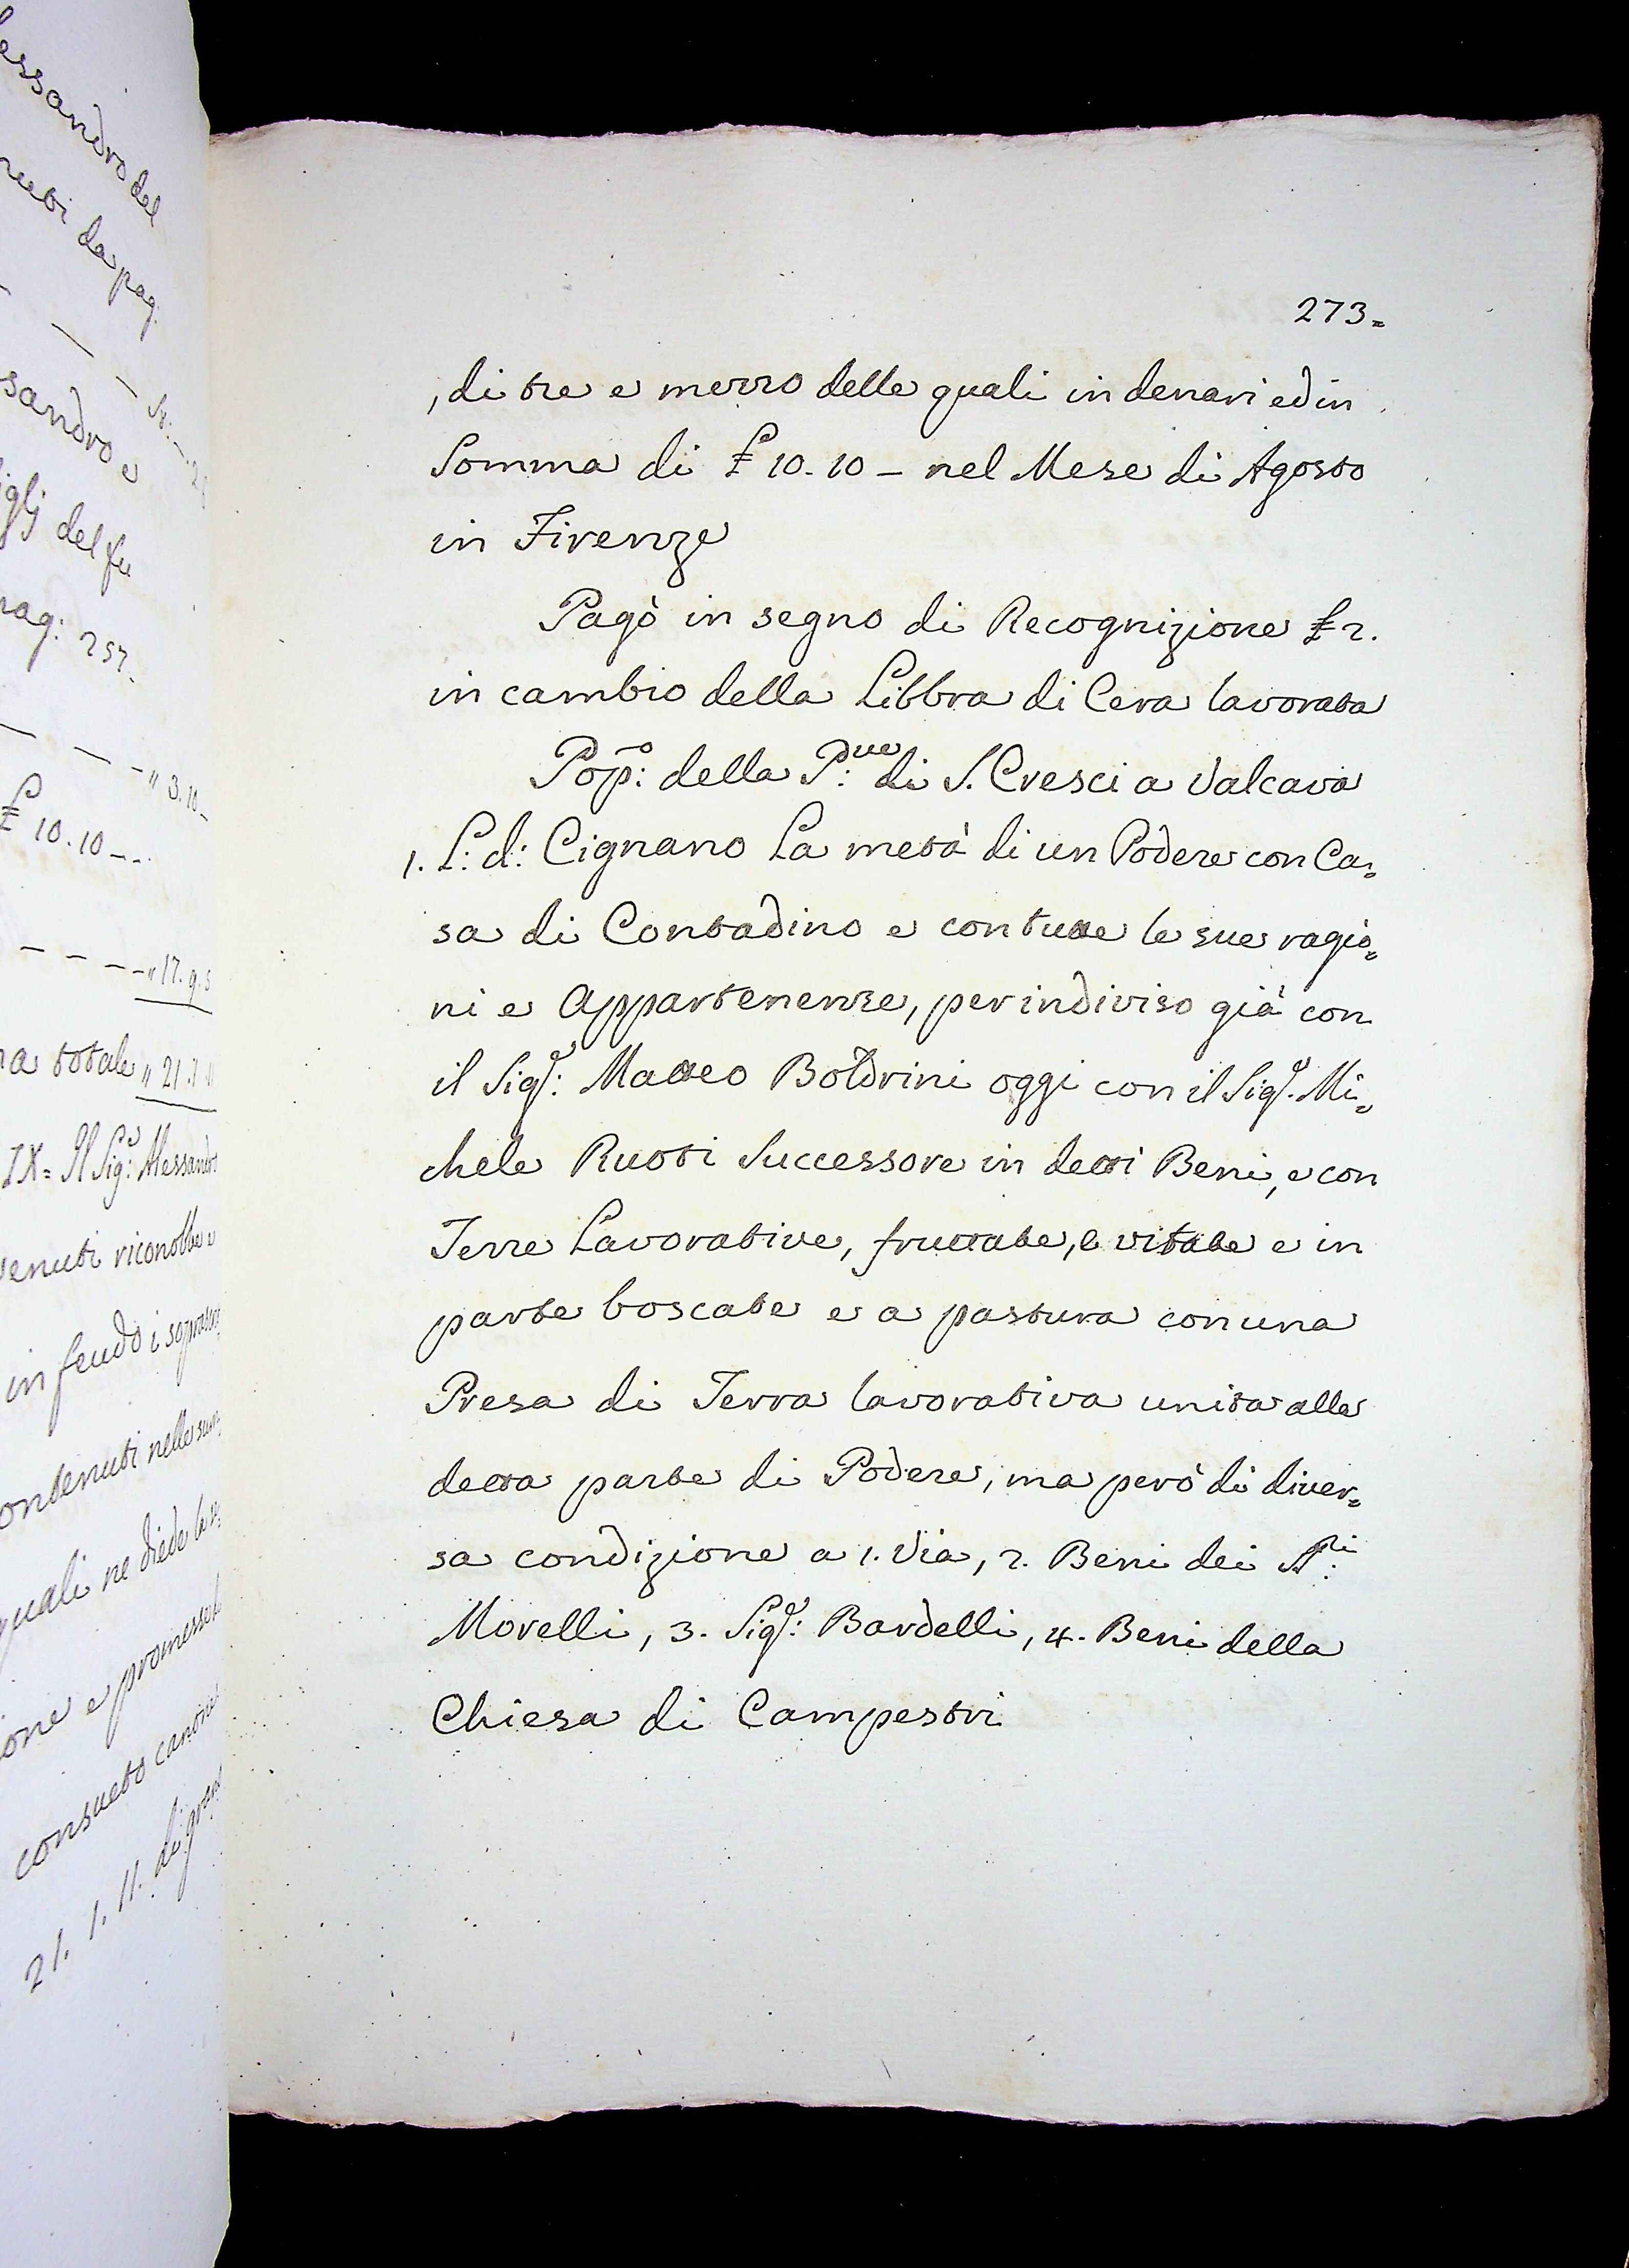 essandro del
nuti da pag:
sandro e
igli del fu
pag: 257.
— — —" 3. 10 —
£ 10. 10 — -
— — — —" 17. 9. 5
na totale " 21. 1. 11
IX= Il Sig:e Alessandro
venuti riconobbe e
in feudo i soprascr
ontenuti nelle sum
quali ne diede la re
ione e promesse
consueto canone
21. 1. 11. di gran
273=
, di tre e mezzo delle quali in denari ed in
Somma di £ 10. 10 — nel Mese di Agosto
in Firenze
Pagò in segno di Recognizione £ 2.
in cambio della Libbra di Cera lavorata
Pop:o della P:ve di S. Cresci a Valcava
1. L: d: Cignano La metà di un Podere con Ca=
sa di Contadino e con tutte le sue ragio=
ni e Appartenenze, per indiviso già con
il Sig:e Matteo Boldrini oggi con il Sig:e Mi=
chele Ruoti Successore in detti Beni, e con
Terre Lavorative, fruttate, e vitate e in
parte boscate e a pastura con una
Presa di Terra lavorativa unita alla
detta parte di Podere, ma però di diver=
sa condizione a 1. Via, 2. Beni dei SS:ri
Morelli, 3. Sig:e Bardelli, 4. Beni della
Chiesa di Campestri